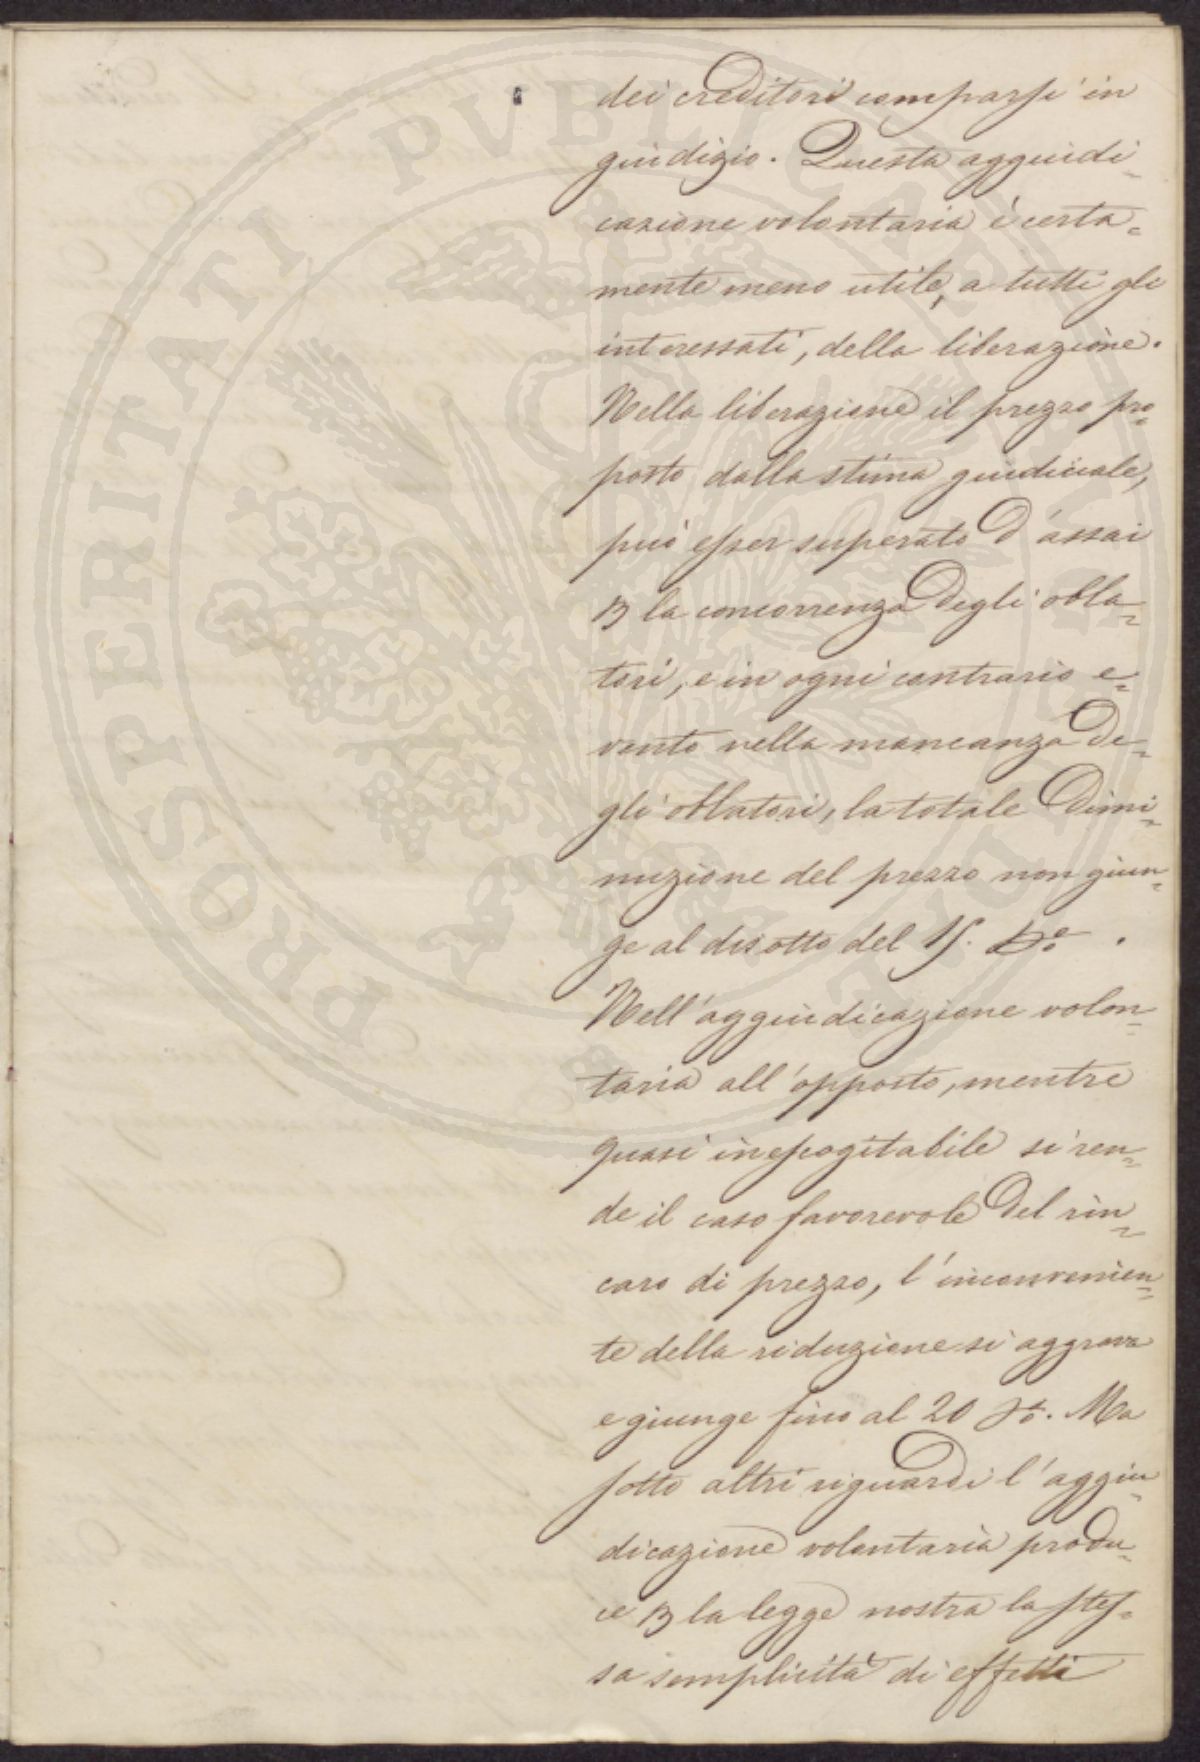 dei creditori comparsi in
giudizio. Questa aggiudi-
cazione volontaria è certa=
mente meno utile, a tutti gli
interessati, della liberazione.
Nella liberazione il prezzo pro=
posto dalla stima giudiciale,
può esser superato d'assai
p la concorrenza degli obla=
tori, e in ogni contrario e=
vento nella mancanza de=
gli oblatori, la totale dimi=
nuzione del prezzo non giun=
ge al disotto del 15.
Nell'aggiudicazione volon=
taria all'opposto, mentre
quasi inescogitabile si ren=
de il caso favorevole del rin=
caro di prezzo, l'inconvenien=
te della riduzione si aggrava
e giunge fino al 20 p%. Ma
sotto altri riguardi l'aggiu=
dicazione volontaria produ=
ce p la legge nostra la stes=
sa semplicità di effetti
PROSPERITATI PVBLICAE